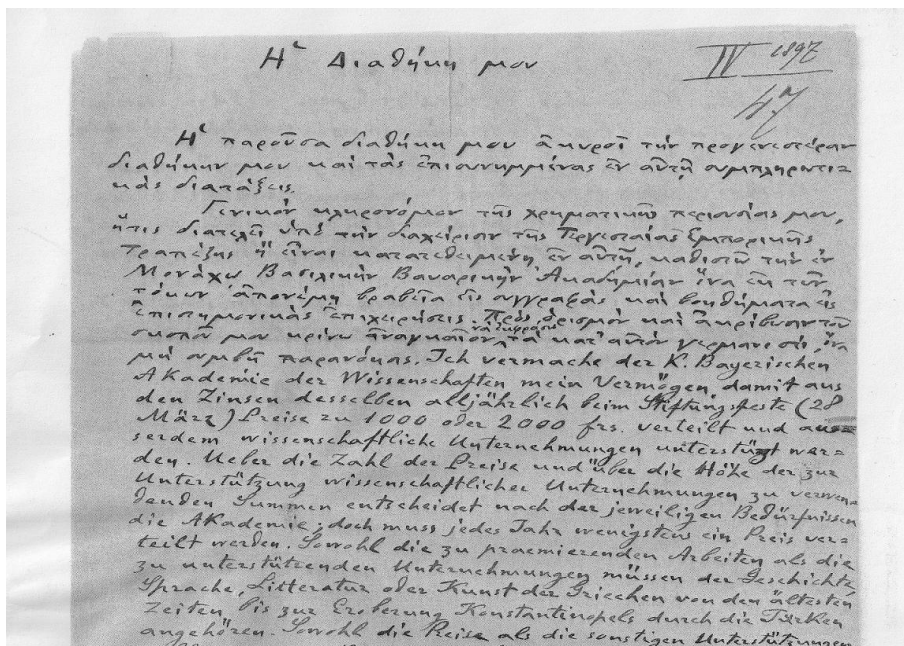 Ἡ Διαθήκη μου
IV 1897
47
Ἡ παροῦσα διαθήκη μου ἀκυροῖ τὴν προγενεστέραν
διαθήκην μου καὶ τὰς ἐπισυνημμένας ἐν αὐτῇ συμπληρωτι=
κὰς διατάξεις.
Γενικὸν κληρονόμον τῆς χρηματικῆς περιουσίας μου,
ἥτις διατελεῖ ὑπὸ τὴν διαχείρισιν τῆς Τεργεσταίας Ἐμπορικῆς
Τραπέζης ἢ εἶναι κατατεθειμένη ἐν αὐτῇ, καθιστῶ τὴν ἐν
Μονάχῳ Βασιλικὴν Βαυαρικὴν Ἀκαδημίαν ἵνα ἐκ τῶν
τόκων ἀπονέμῃ βραβεῖα εἰς συγγραφὰς καὶ βοηθήματα εἰς
ἐπιστημονικὰς ἐπιχειρήσεις. Πρὸς ὁρισμὸν καὶ ἀκρίβωσιν τοῦ
σκοποῦ μου κρίνω ἀναγκαῖον νὰ ἐκφράσω τὰ κατ' αὐτὸν γερμανιστί, ἵνα
μὴ συμβῇ παρανόησις. Ich vermache der K. Bayerischen
Akademie der Wissenschaften mein Vermögen, damit aus
den Zinsen desselben alljährlich beim Stiftungsfeste (28
März) Preise zu 1000 oder 2000 frs. verteilt und aus=
serdem wissenschaftliche Unternehmungen unterstüzt wer=
den. Ueber die Zahl der Preise und über die Höhe der zur
Unterstützung wissenschaftlicher Unternehmungen zu verwen=
denden Summen entscheidet nach der jeweiligen Bedürfnissen
die Akademie; doch muss jedes Jahr wenigstens ein Preis ver=
teilt werden. Sowohl die zu praemierenden Arbeiten als die
zu unterstützenden Unternehmungen müssen der Geschichte
Sprache, Litteratur oder Kunst der Griechen von den ältesten
Zeiten bis zur Eroberung Konstantinopels durch die Türken
angehören. Sowohl die Preise als die sonstigen Unterstützungen